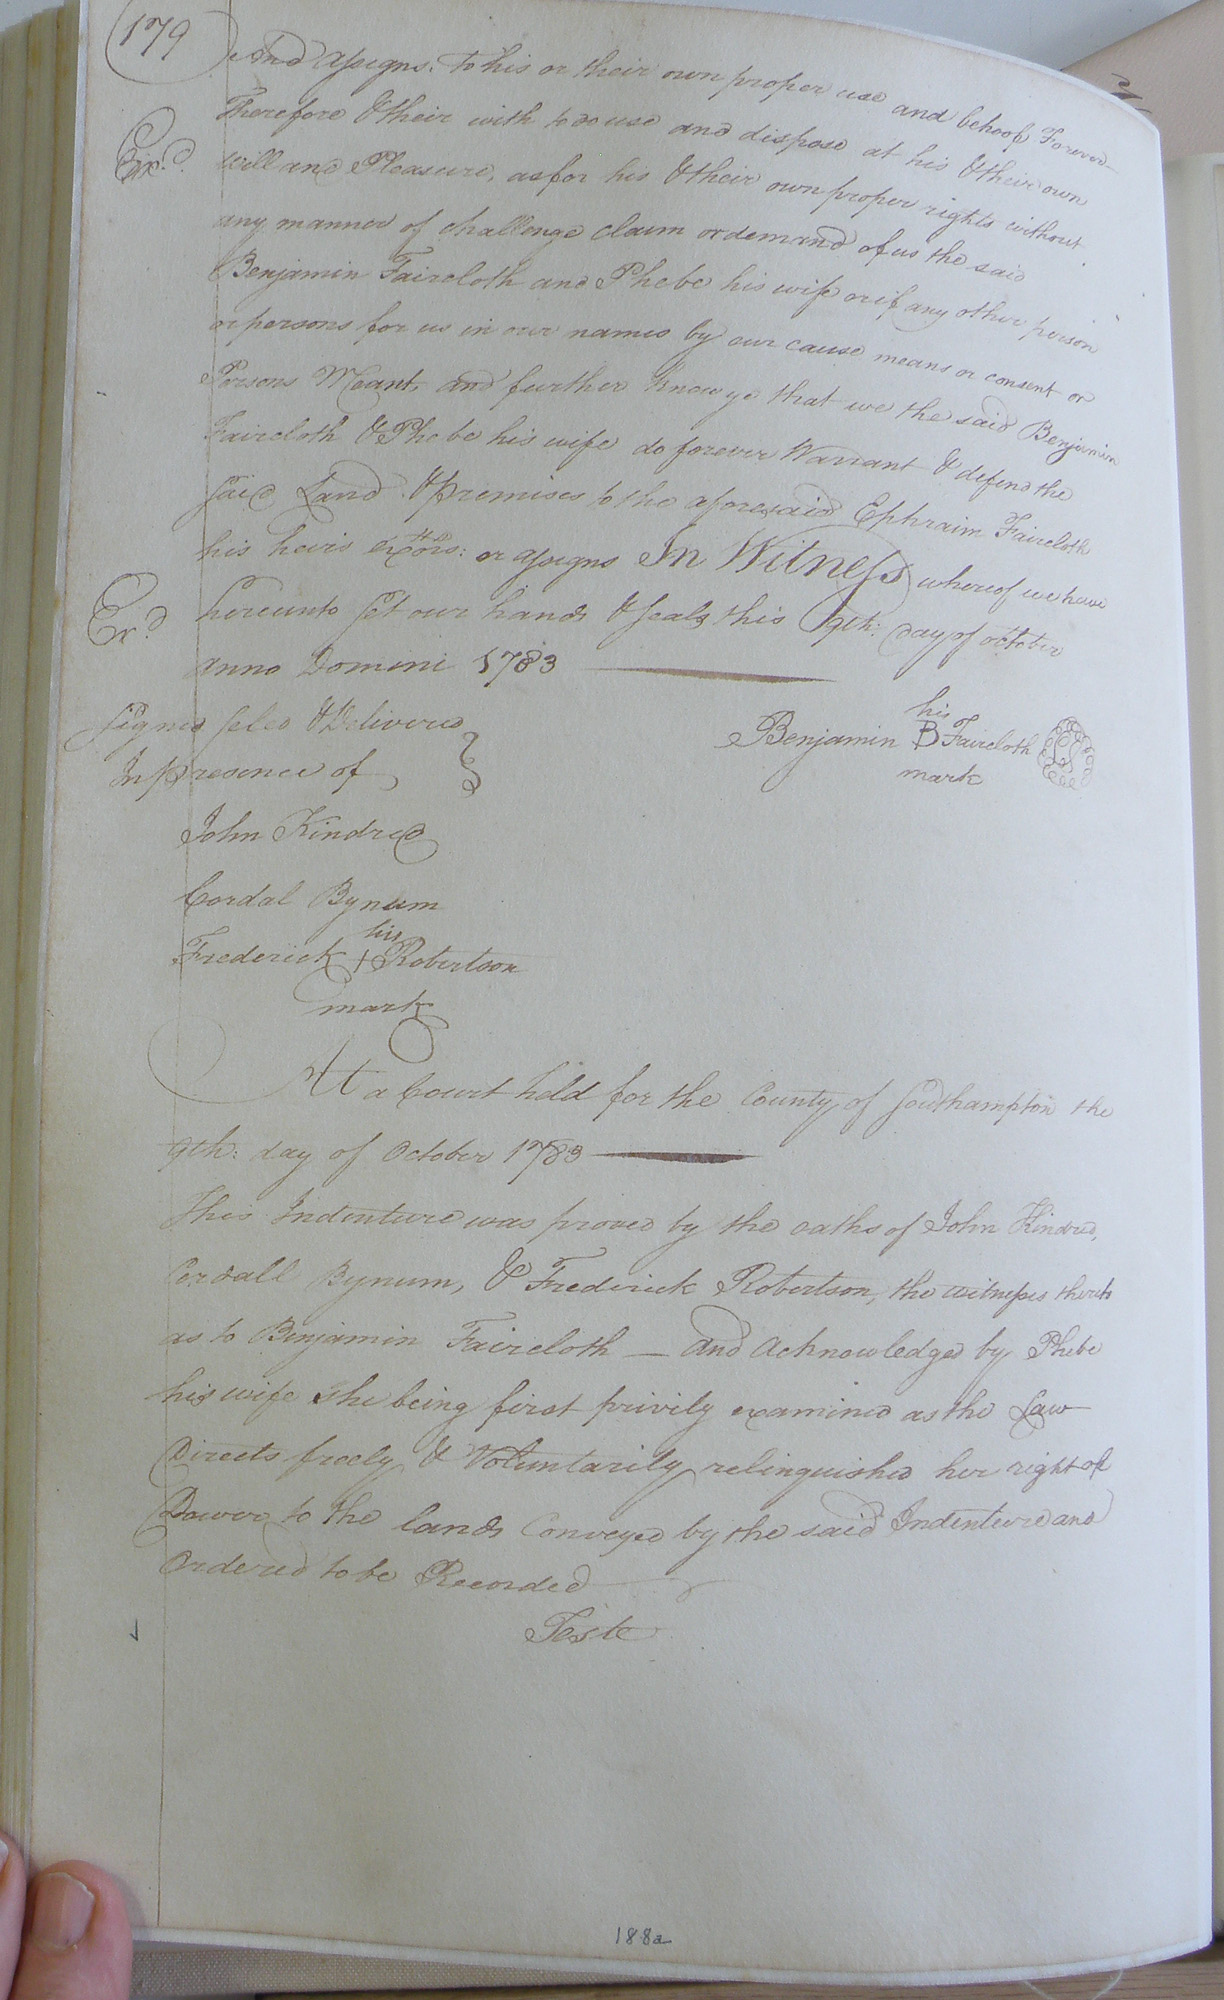 179
and assigns. To his or their own proper use and behoof Forever
Therefore & their with to do use and dispose at his & their own
Ex.d
will and Pleasure, as for his & their own proper rights without
any manner of challenge claim or demand of us the said
Benjamin Faircloth and Phebe his wife or if any other person
or persons for us in our names by our cause means or consent or
Persons Meant, and further know ye that we the said Benjamin
Faircloth & Phebe his wife do forever Warrant & defend the
said Land & premises to the aforesaid Ephraim Faircloth
his heirs exōrs: or assigns In Witness whereof we have
Ex.d
hereunto set our hands & seals this 9th: day of october
anno Domini 1783
Signed Seled & Delivered
In presence of
his
Benjamin B Faircloth LS
mark
John Kindred
Cordal Bynum
his
Frederick + Robertson
mark
At a Court held for the County of Southampton the
9th: day of October 1783
This Indenture was proved by the oaths of John Kindred,
Cordall Bynum, & Frederick Robertson, the witnesses thereto
as to Benjamin Faircloth — and Acknowledged by Phebe
his wife she being first privily examined as the Law
Directs freely & Voluntarily relinquished her right of
Dower to the lands Conveyed by the said Indenture and
Ordered to be Recorded
Teste
188a